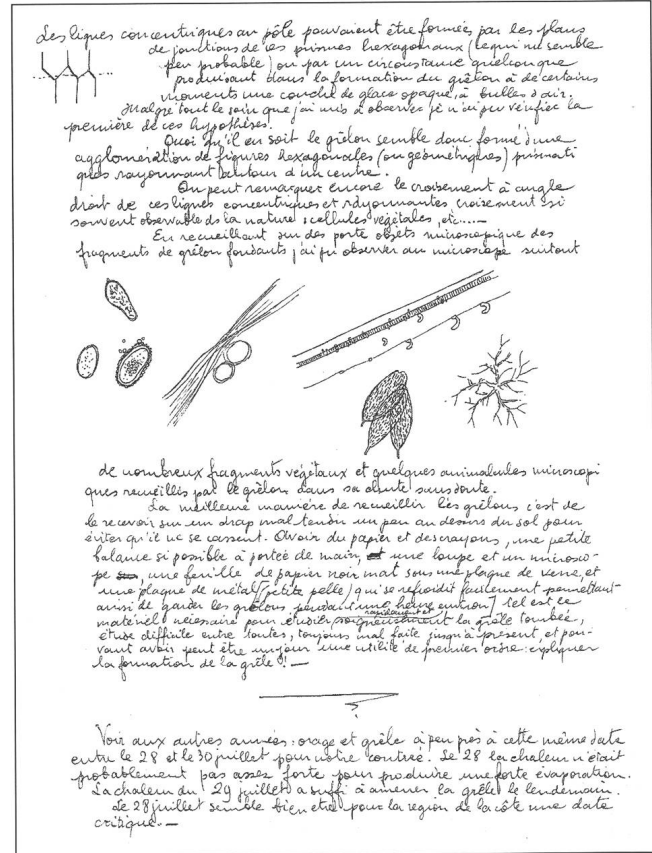 Les lignes concentriques au pôle pouvaient être formées par les plans
de jonctions de ces prismes hexagonaux (ce qui me semble
peu probable) ou par un circonstance quelconque
produisant dans la formation du grêlon à de certains
moments une couche de glace opaque, à bulles d'air.
Malgré tout le soin que j'ai mis à observer je n'ai pu vérifier la
première de ces hypothèses.
Quoi qu'il en soit le grêlon semble donc formé d'une
agglomération de figures hexagonales (ou géométriques) prismati
ques rayonnant autour d'un centre.
On peut remarquer encore le croisement à angle
droit de ces lignes concentriques et rayonnantes croisement si
souvent observable ds la nature : cellules végétales, etc....—
En recueillant sur des porte objets microscopique des
fragments de grêlon fondants j'ai pu observer au microscope surtout
de nombreux fragments végétaux et quelques animalcules microscopi
ques recueillis par le grêlon dans sa chute sans doute.
La meilleure manière de recueillir les grêlons c'est de
le recevoir sur un drap mal tendu un peu au dessus du sol pour
éviter qu'il ne se cassent. Avoir du papier et des crayons, une petite
balance si possible à portée de main, et une loupe et un microsco-
pe, une feuille de papier noir mat sous une plaque de verre, et
une plaque de métal (petite pelle) qui se refroidit facilement permettant
ainsi de garder les grêlons pendant une heure environ) tel est ce
matériel nécessaire pour étudier soigneusement rapidement la grêle tombée,
étude difficile entre toutes, toujours mal faite jusqu'à présent, et pou-
vant avoir peut être un jour une utilité de premier ordre : expliquer
la formation de la grêle !! —
Voir aux autres années : orage et grêle à peu près à cette même date
entre le 28 et le 30 juillet pour notre contrée. Le 28 la chaleur n'était
probablement pas assez forte pour produire une forte évaporation.
La chaleur du 29 juillet a suffi à amener la grêle le lendemain.
Le 28 juillet semble bien etre pour la region de la côte une date
critique.—